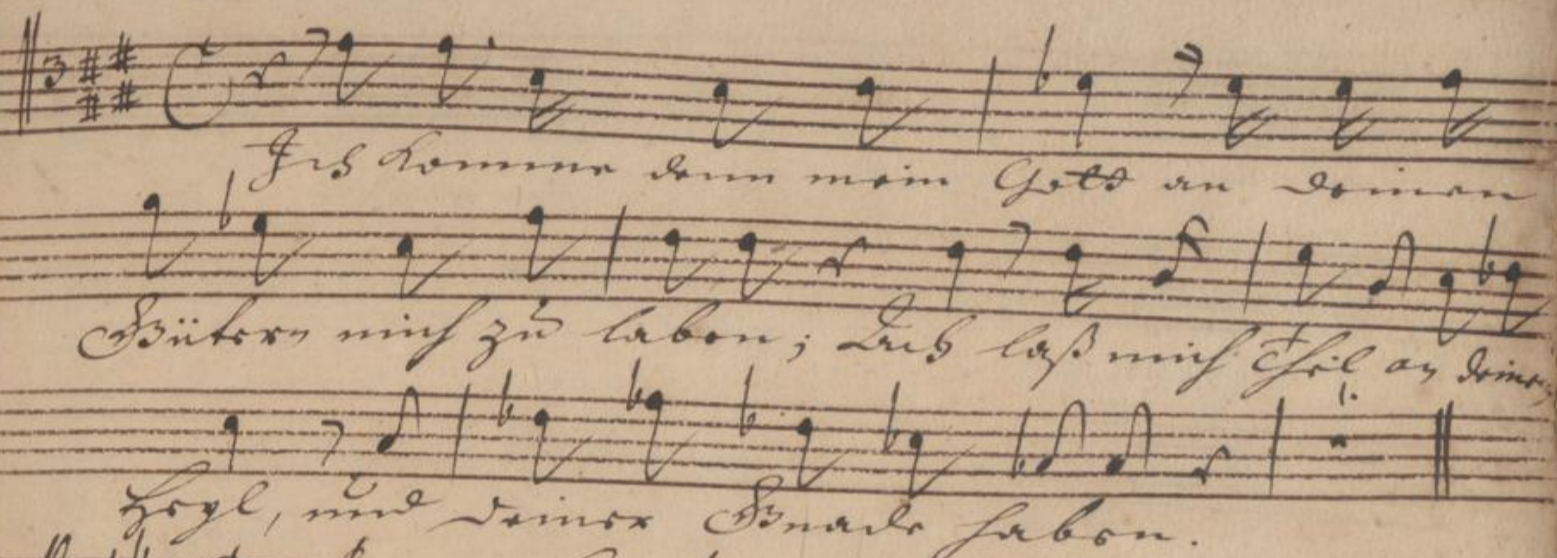 Ich komme denn mein Gott an deinen
Gütern mich zu laben; Ach laß mich Theil an deinem
Heyl, und deiner Gnade haben.